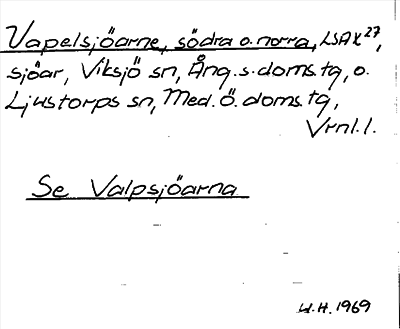 Vapelsjöarne, södra o. norra, LSAK 27,
sjöar, Viksjö sn, Ång. s. doms. tg, o.
Ljustorps sn, Med. Ö. doms. tg,
Vrnl. l.
Se Valpsjöarna
W.H. 1969